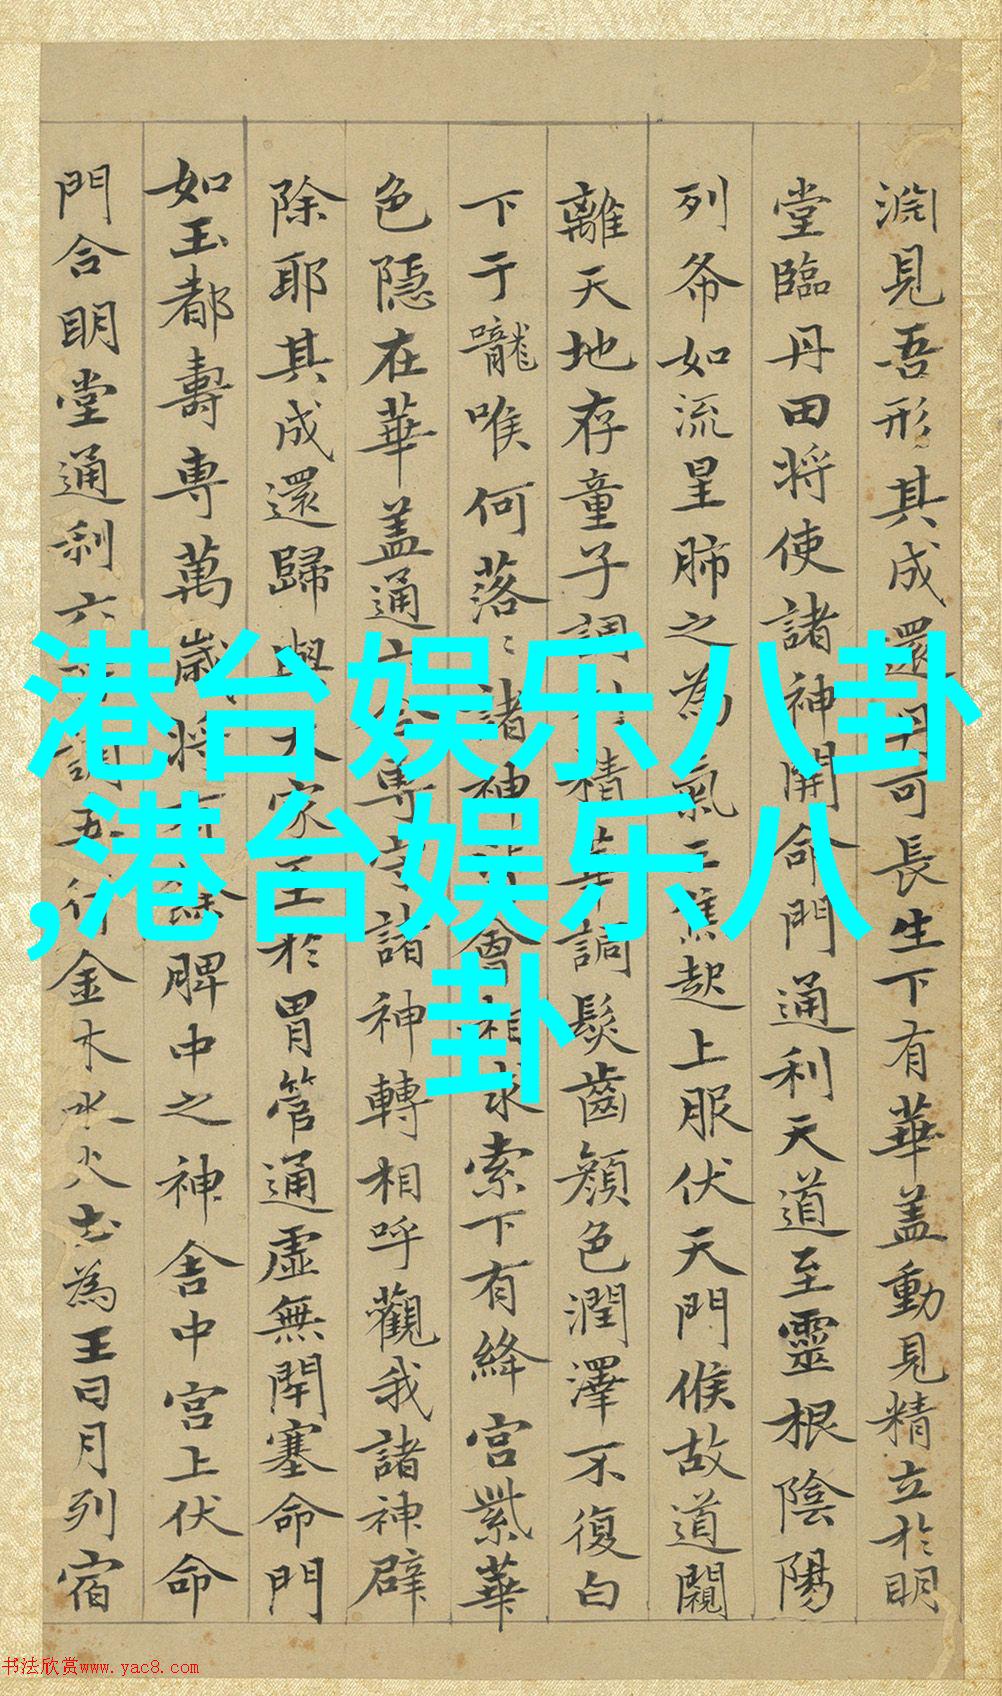 淵見吾形其成還丹可長生下有華盖動見精立於明
堂臨丹田将使諸神開命門通利天道至靈根陰陽
列布如流星肺之為氣三焦起上服伏天門候故道闚
離天地存童子調精華調髮齒顏色潤澤不復白
下于嚨喉何落〻諸神會相求索下有絳宮紫華
色隱在華盖通専守諸神轉相呼觀我諸神辟
除耶其成還歸與家至於胃管通虛無閉塞命門
如玉都壽専萬歲将有餘脾中之神舎中宮上伏命
門合明堂通利六調五行金木水火土為王日月列宿
港台娱乐八卦
,港台娱乐八
卦
书法欣赏www.yac8.com